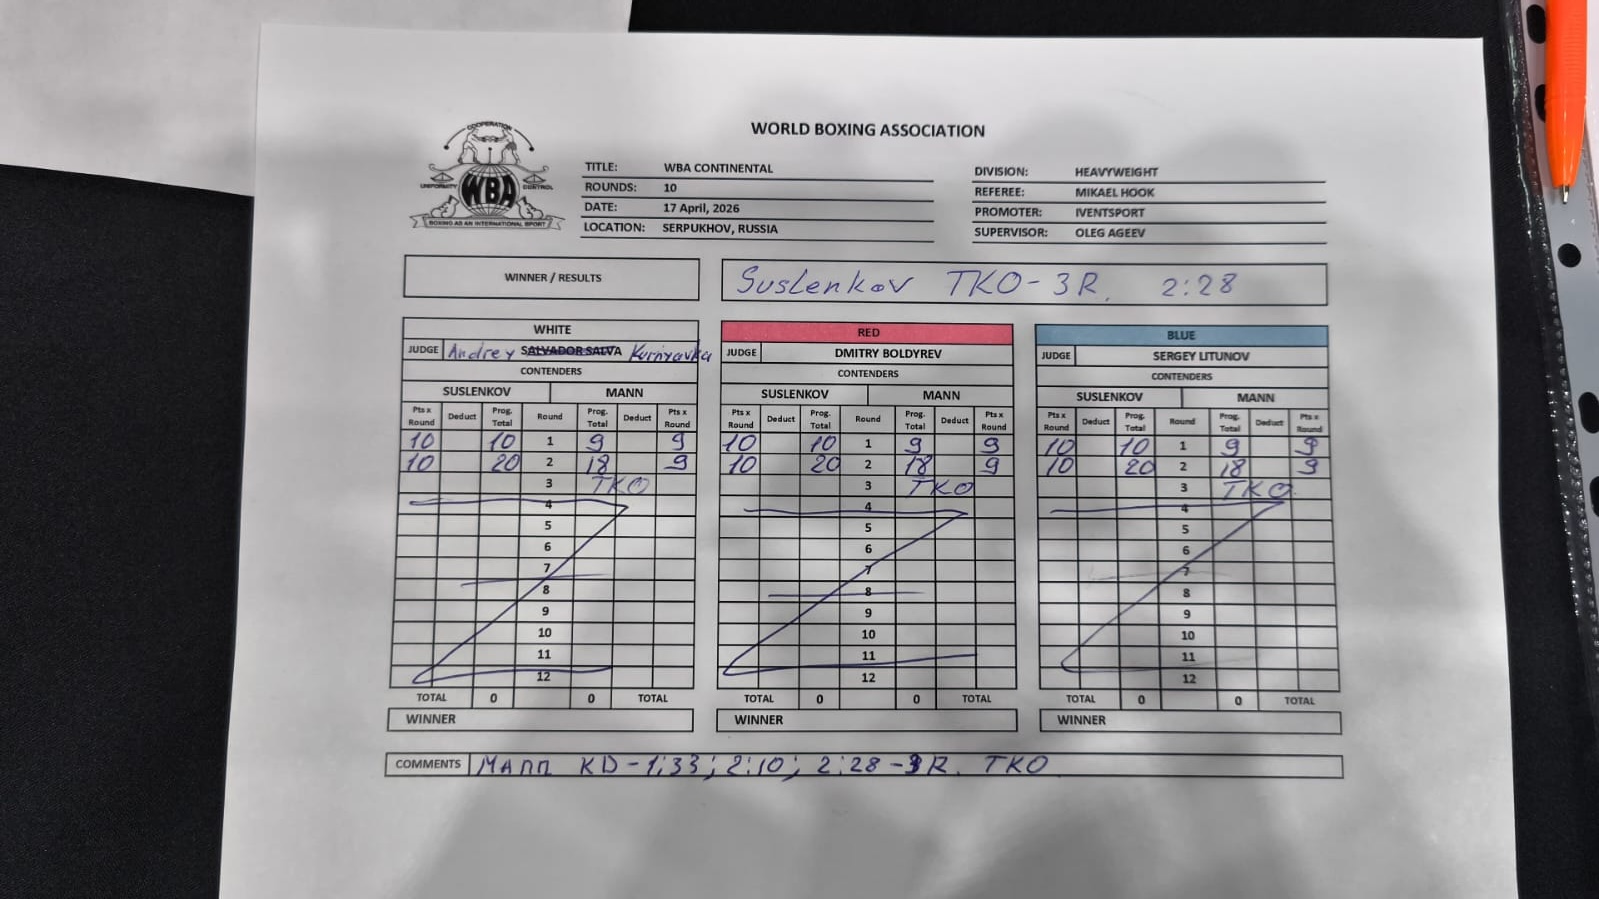 WORLD BOXING ASSOCIATION
COOPERATION
UNIFORMITY WBA CONTROL
BOXING AS AN INTERNATIONAL SPORT
TITLE: WBA CONTINENTAL
ROUNDS: 10
DATE: 17 April, 2026
LOCATION: SERPUKHOV, RUSSIA
DIVISION: HEAVYWEIGHT
REFEREE: MIKAEL HOOK
PROMOTER: IVENTSPORT
SUPERVISOR: OLEG AGEEV
WINNER / RESULTS Suslenkov TKO-3R. 2:28
WHITE
JUDGE Andrey SALVADOR SALVA Kurnyavka
CONTENDERS
SUSLENKOV MANN
Pts x Round Deduct Prog. Total Round Prog. Total Deduct Pts x Round
10 10 1 9 9
10 20 2 18 9
3 TKO
4
5
6
7
8
9
10
11
12
TOTAL 0 0 TOTAL
WINNER
RED
JUDGE DMITRY BOLDYREV
CONTENDERS
SUSLENKOV MANN
Pts x Round Deduct Prog. Total Round Prog. Total Deduct Pts x Round
10 10 1 9 9
10 20 2 18 9
3 TKO
4
5
6
7
8
9
10
11
12
TOTAL 0 0 TOTAL
WINNER
BLUE
JUDGE SERGEY LITUNOV
CONTENDERS
SUSLENKOV MANN
Pts x Round Deduct Prog. Total Round Prog. Total Deduct Pts x Round
10 10 1 9 9
10 20 2 18 9
3 TKO
4
5
6
7
8
9
10
11
12
TOTAL 0 0 TOTAL
WINNER
COMMENTS Mann KD-1:33; 2:10; 2:28-3R. TKO